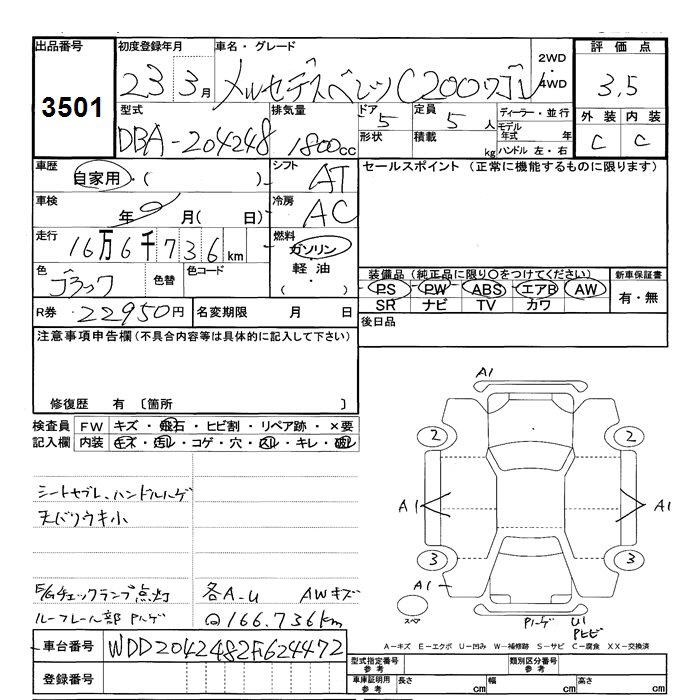 出品番号
3501
初度登録年月
23 3月
車名・グレード
メルセデスベンツ C200ワゴン
2WD
4WD
評価点
3.5
外装 内装
C C
型式
DBA-204248
排気量
1800cc
ドア
5
形状
定員
5人
積載
kg
ディーラー・並行
モデル年式 年
ハンドル 左・右
車歴
自家用・( )
シフト
AT
車検
年 月( 日)
冷房
AC
走行
16万6千736km
燃料
ガソリン
軽油
( ・ )
色
ブラック
色替
色コード
R券
22950円
名変期限 月 日
セールスポイント (正常に機能するものに限ります)
装備品 (純正品に限り〇をつけてください)
PS PW ABS エアB AW
SR ナビ TV カワ
新車保証書
有・無
後日品
注意事項申告欄(不具合内容等は具体的に記入して下さい)
修復歴 有 〔箇所 〕
検査員記入欄
FW キズ・飛石・ヒビ割・リペア跡・×要
内装 キズ・汚レ・コゲ・穴・スレ・キレ・
シートセブレ、ハンドルハゲ
天バリウキ小
E/Gチェックランプ点灯
ルーフレール部
各A-U AWキズ
166.736km
車台番号
WDD2042482F624472
登録番号
A1
2 2
A1 A1
3 3
A1
スペア
U1
A-キズ E-エクボ U-凹み W-補修跡 S-サビ C-腐食 XX-交換済
型式指定番号 参考
類別区分番号 参考
車庫証明用 参考
長さ cm
幅 cm
高さ cm